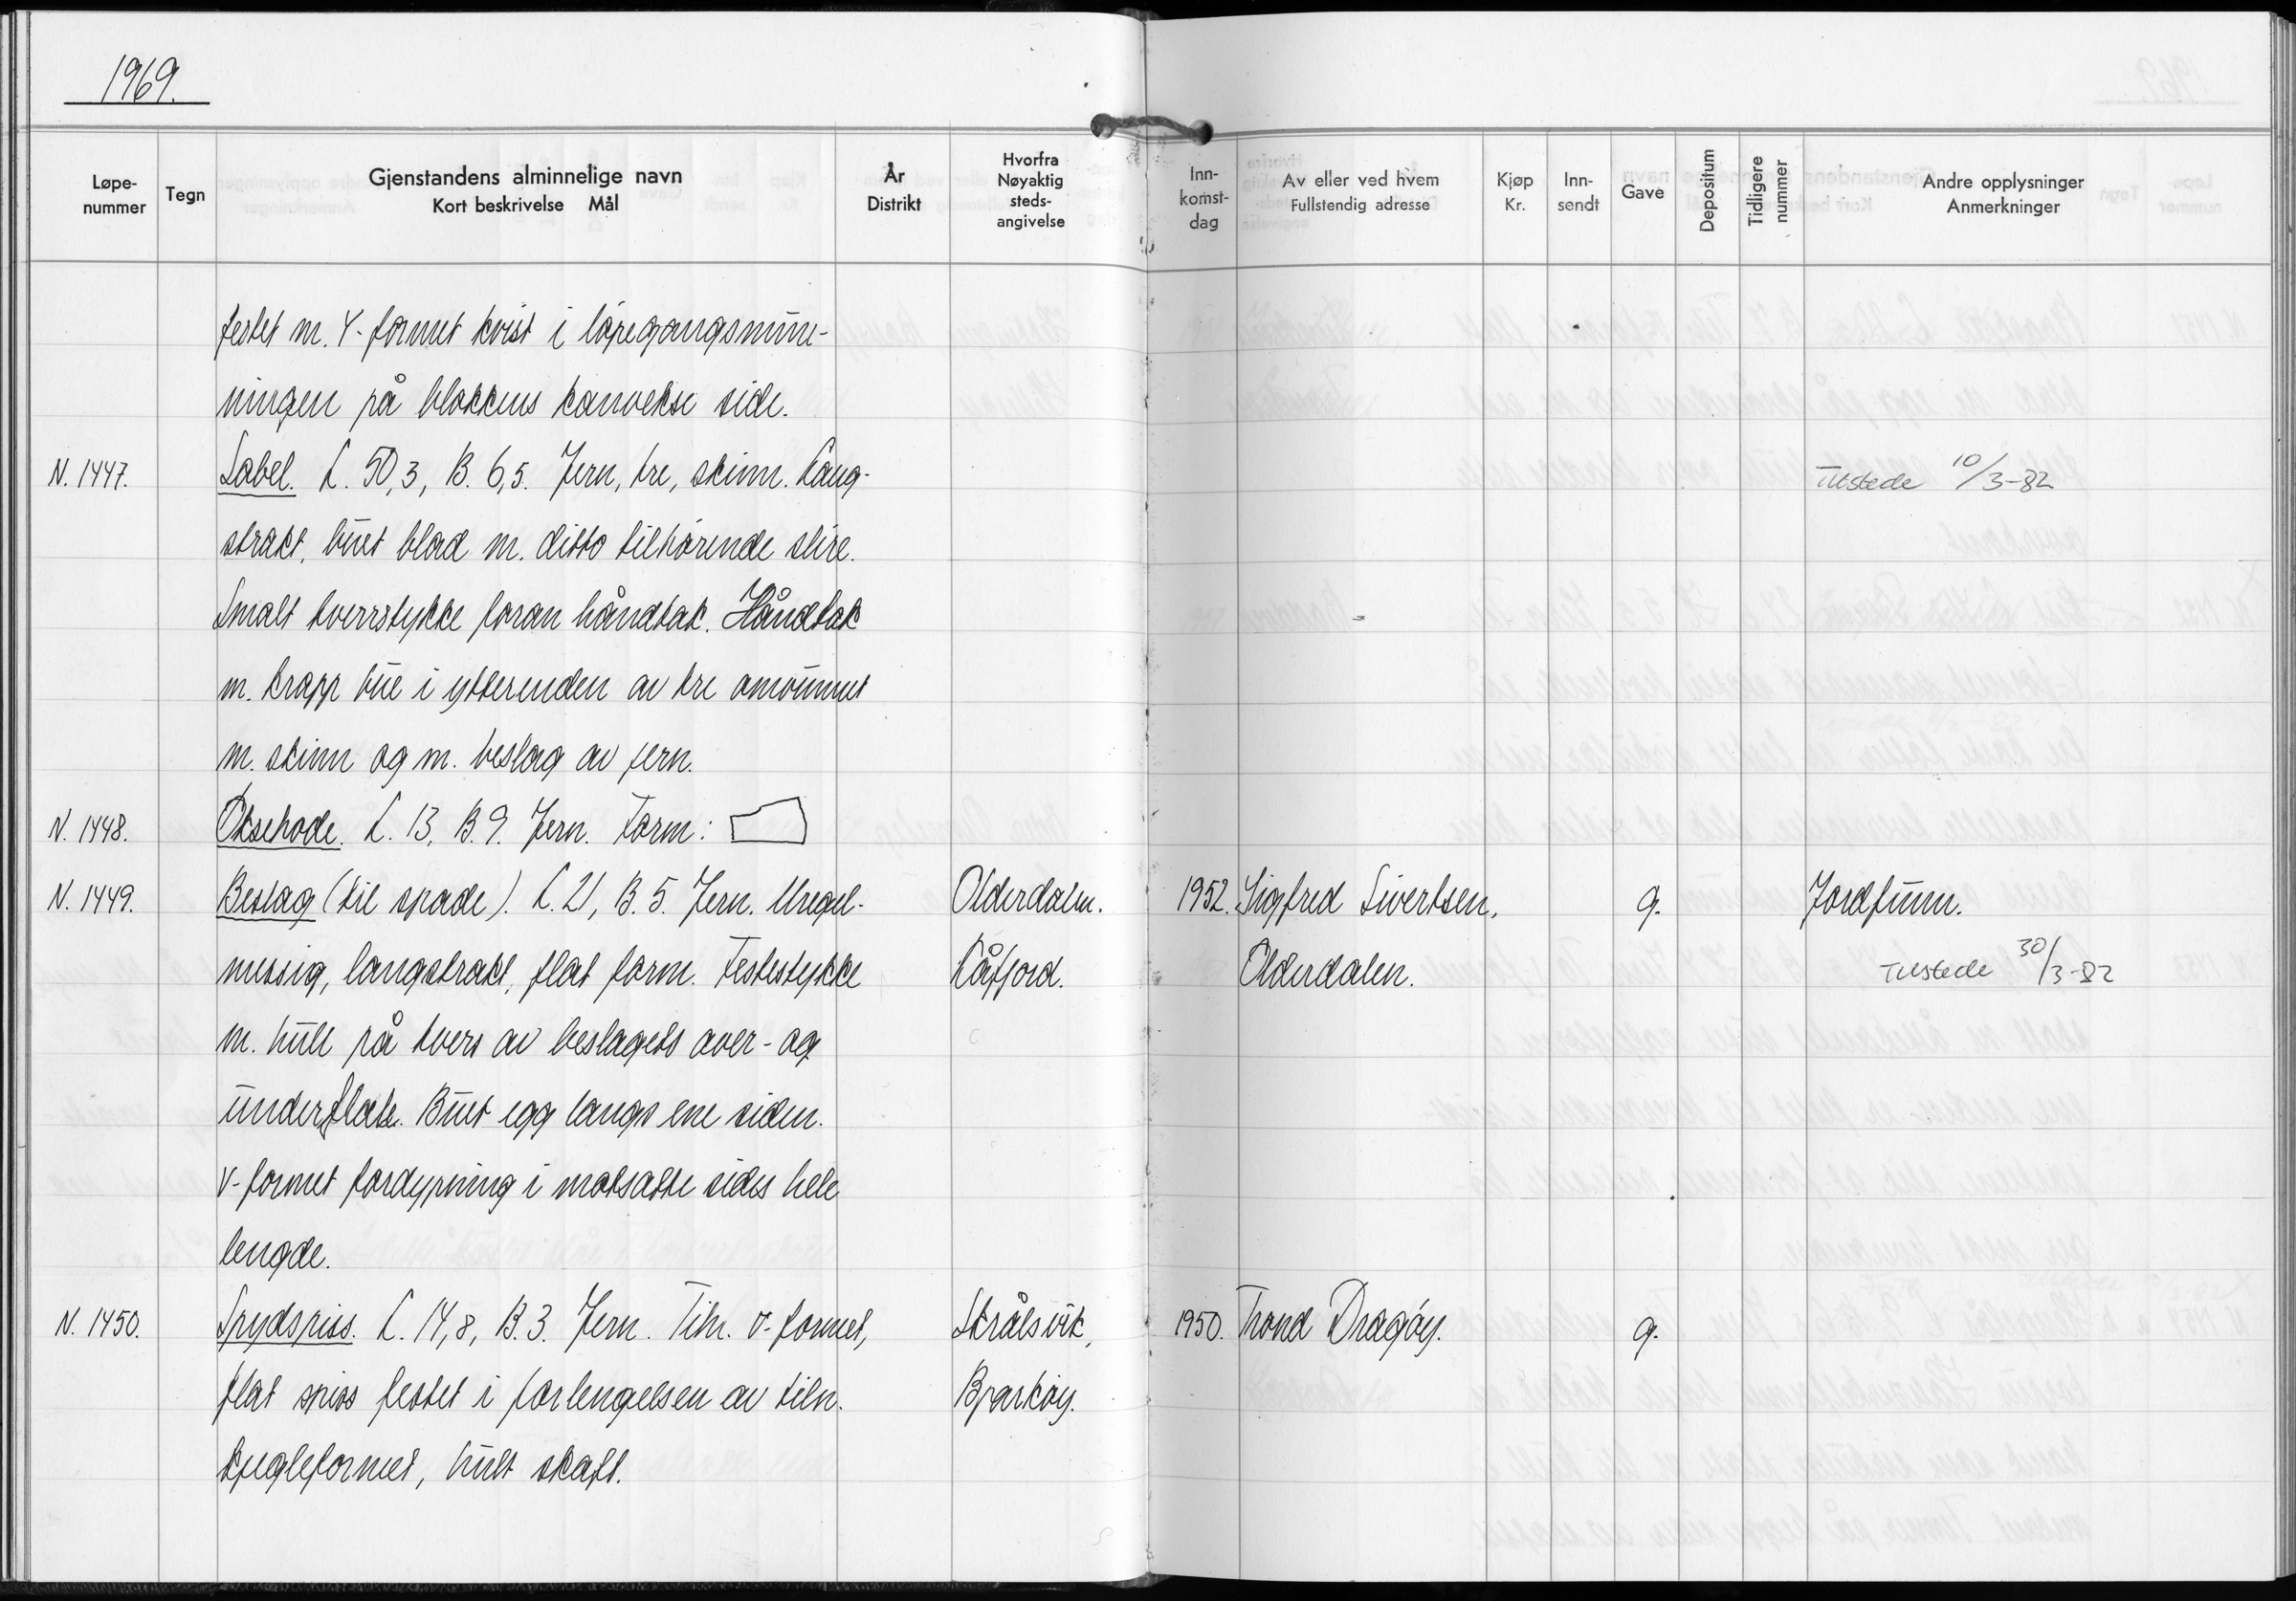 1969.
Løpe-nummer Tegn Gjenstandens alminnelige navn Kort beskrivelse Mål År Distrikt Hvorfra Nøyaktig steds-angivelse Inn-komst-dag Av eller ved hvem Fullstendig adresse Kjøp Kr. Inn-sendt Gave Depositum Tidligere nummer Andre opplysninger Anmerkninger
festet m. Y-formet kvist i løpegangsmun-
ningen på blokkens konvekse side.
N. 1447. Sabel. L. 50,3, B. 6,5. Jern, tre, skinn. Lang- Tilstede 10/3-82
strakt, buet blad m. ditto tilhørende slire.
Smalt tverrstykke foran håndtak. Håndtak
m. krapp bue i ytterenden av tre omvunnet
m. skinn og m. beslag av jern.
N. 1448. Øksehode. L. 13, B. 9. Jern. Form:
N. 1449. Beslag (til spade). L. 21, B. 5. Jern. Uregel- Olderdalen. 1952. Sigfred Sivertsen, g. Jordfunn.
messig, langstrakt, flat form. Festestykke Kåfjord. Olderdalen. Tilstede 30/3-82
m. hull på tvers av beslagets over- og
underflate. Buet egg langs ene siden.
V-formet fordypning i motsatte sides hele
lengde.
N. 1450. Spydspiss. L. 14,8, B. 3. Jern. Tiln. v-formet, Skrålsvik, 1950. Trond Dragøy. g.
flat spiss festet i forlengelsen av tiln. Bjarkøy.
kjegleformet, hult skaft.